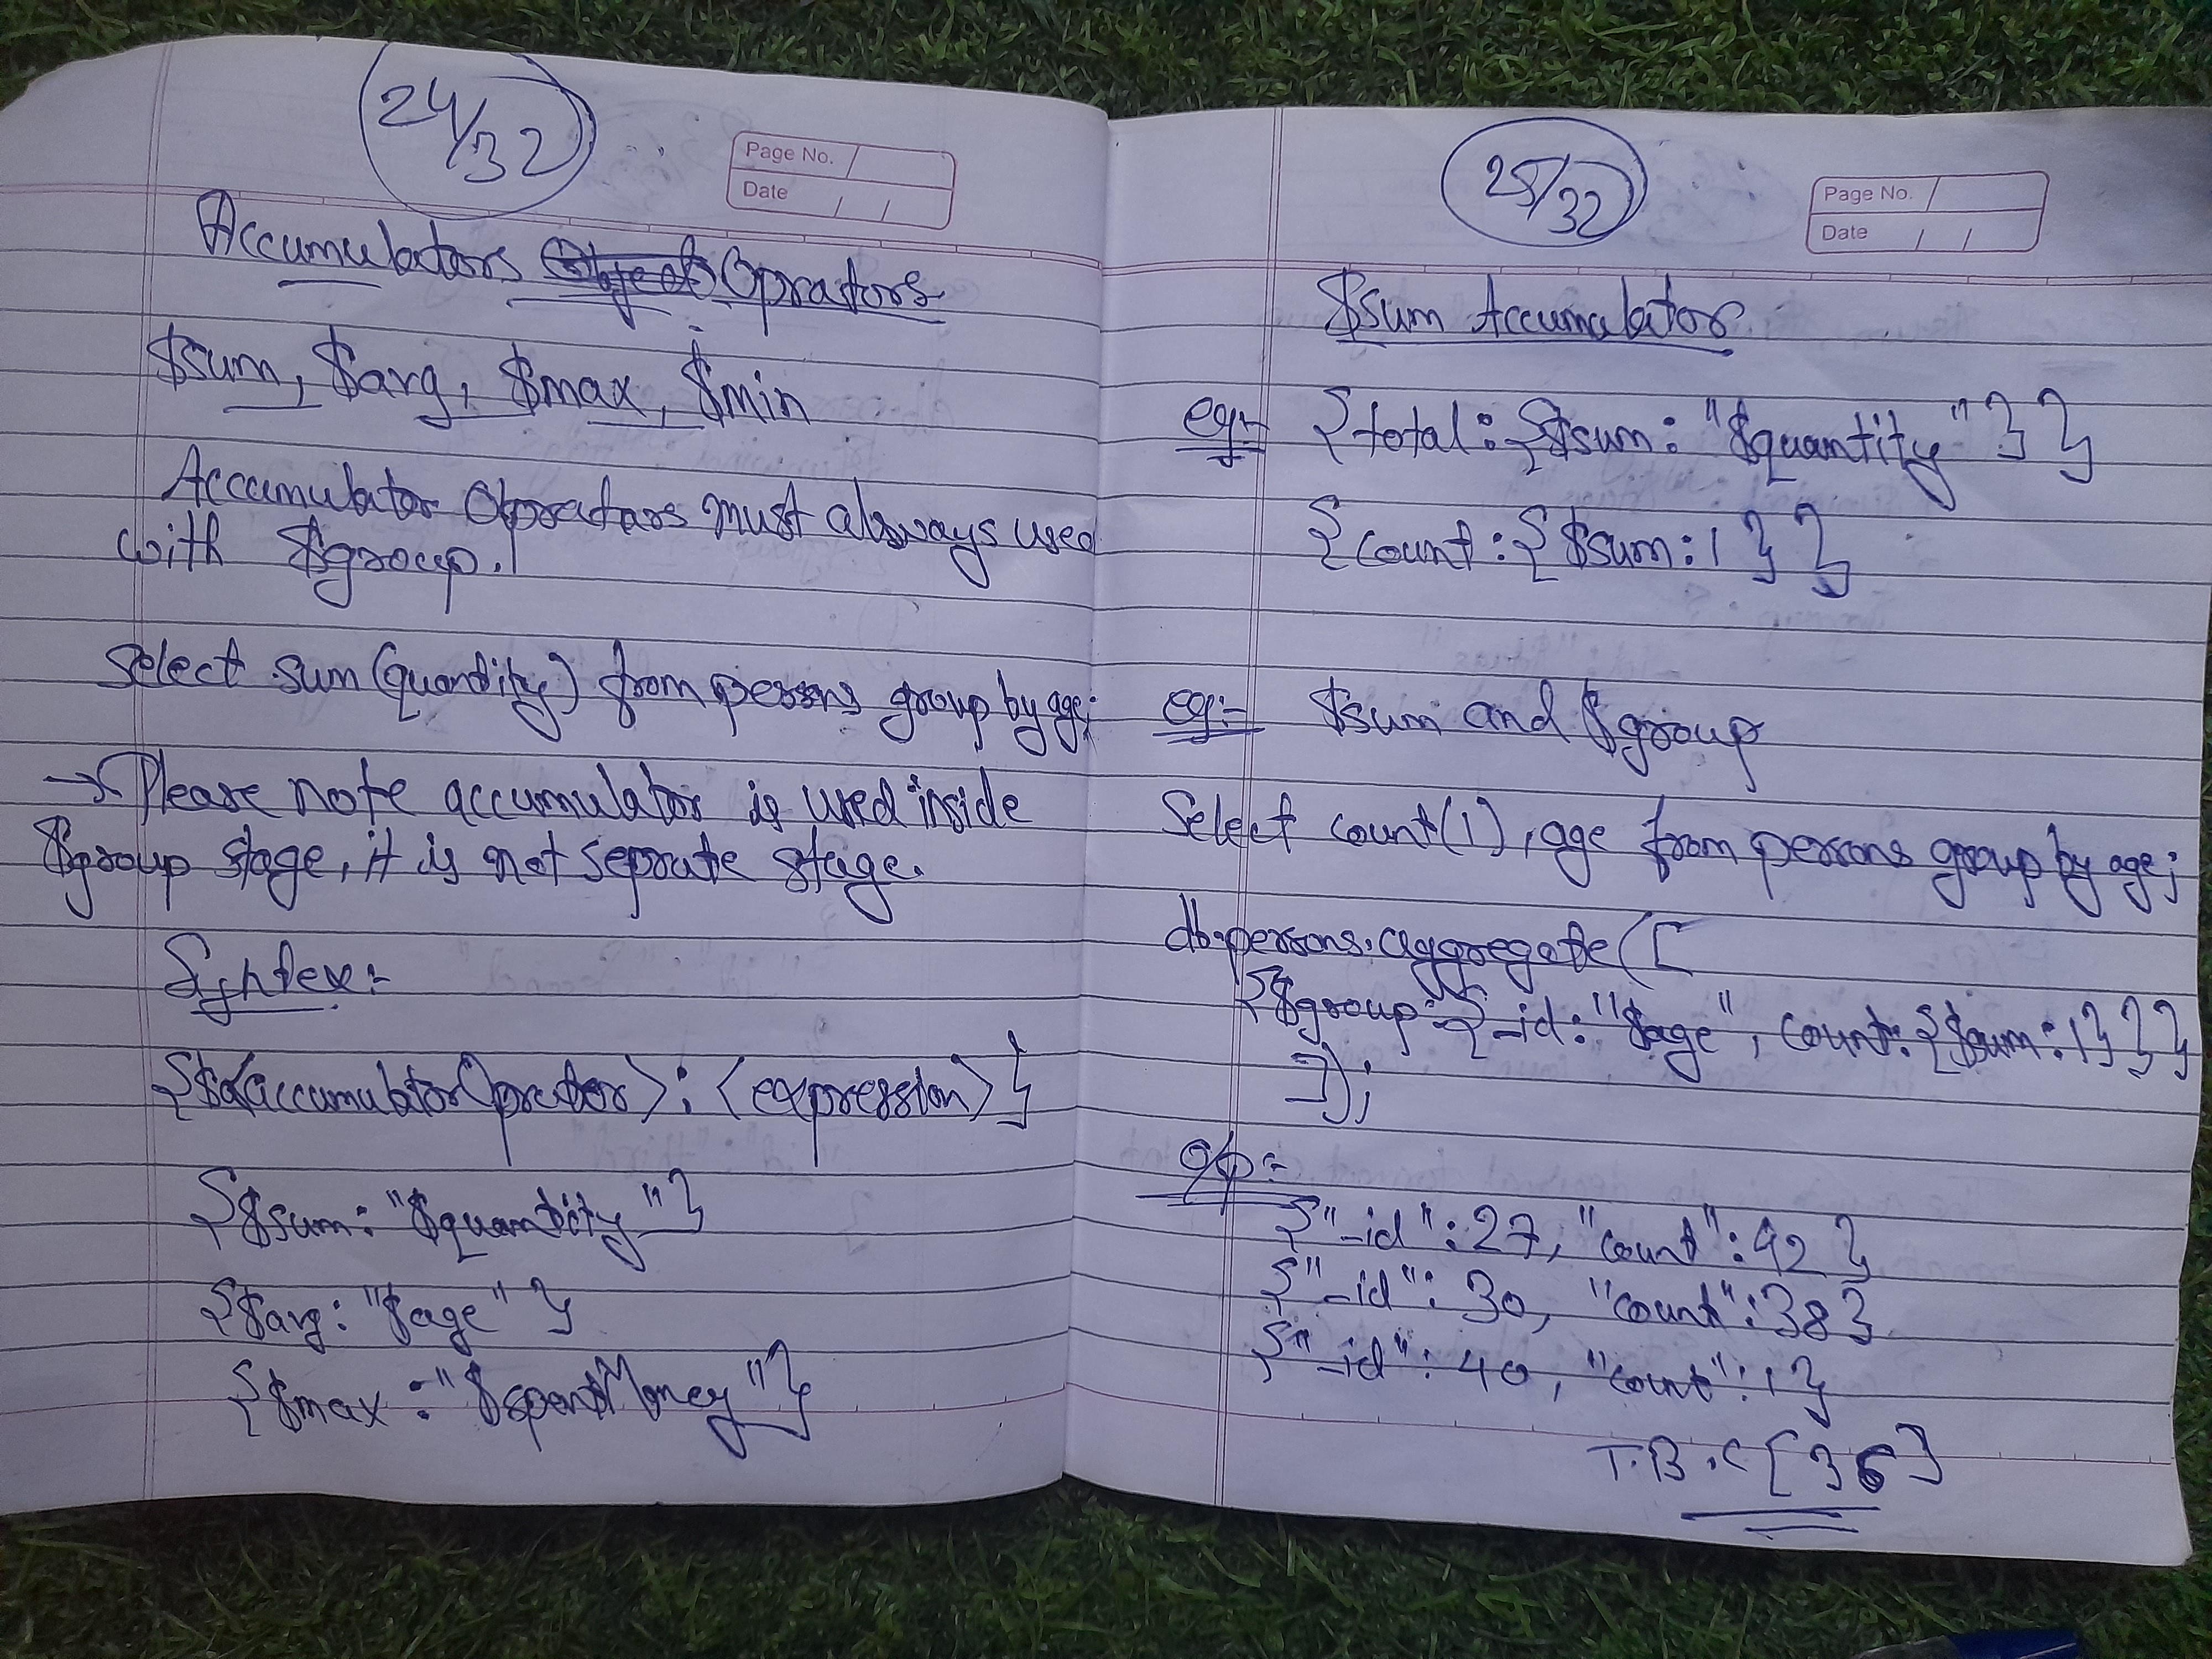 24/32
Page No.
Date / /
Accumulators Operators
$sum, $avg, $max, $min
Accumulator Operators must always used
with $group.
Select sum(quantity) from persons group by age;
→ Please note accumulator is used inside
$group stage, it is not separate stage.
Syntex:-
{$<accumulatorOperator>: <expression>}
{$sum: "$quantity"}
{$avg: "$age"}
{$max: "$spentMoney"}
25/32
Page No.
Date / /
$sum Accumulator
eg:- {total: {$sum: "$quantity"}}
{count: {$sum: 1}}
eg:- $sum and $group
Select count(1), age from persons group by age;
db.persons.aggregate([
{$group: {_id: "$age", count: {$sum: 1}}}
]);
O/p:-
{"_id": 27, "count": 42}
{"_id": 30, "count": 38}
{"_id": 40, "count": 1}
T.B.C [36]